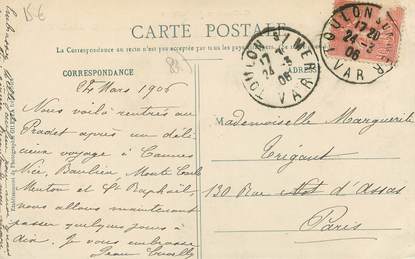 CARTE POSTALE
La Correspondance au recto n'est pas acceptée par tous les pays
CORRESPONDANCE
ADRESSE
24 Mars 1906
Nous voilà rentrés au
Pradet après un déli-
cieux voyage à Cannes
Nice, Beaulieu, Monte Carlo
Menton et St Raphaël,
nous allons maintenant
passer quelques jours à
Je vous embrasse
Jean
Mademoiselle Marguerite
Trigant
130 Rue d'Assas
Paris
TOULON S/ MER
24 -3
06
VAR
TOULON S/ MER
17 20
24 -3
06
VAR